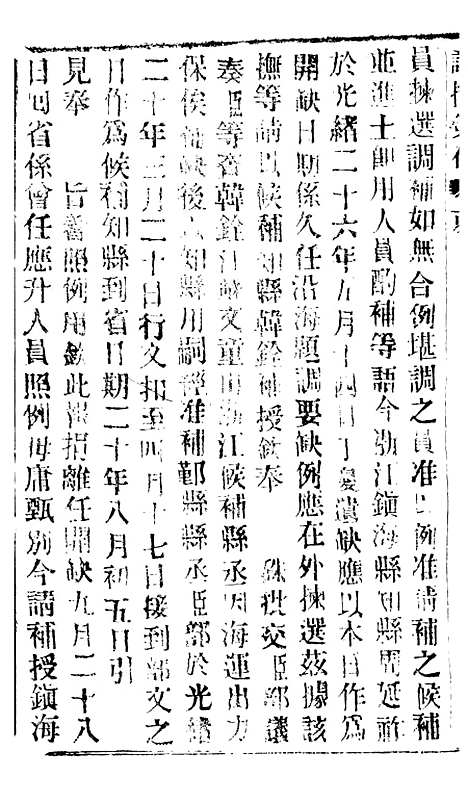 員揀選調補如無合例堪調之員准以例准請補之候補
並進士即用人員酌補等語今浙江鎮海縣知縣周延祚
於光緒二十六年五月十四日丁憂遺缺應以本日作爲
開缺日期係久任沿海題調要缺例應在外揀選茲據該
撫等請以候補知縣韓銓補授欽奉　　硃批交臣部議
奏臣等查韓銓江蘇文童由浙江候補縣丞因海運出力
保俟補缺後以知縣用嗣經准補鄞縣縣丞臣部於光緒
二十年三月二十日行文扣至四月十七日接到部文之
日作爲候補知縣到省日期二十年八月初五日引
見奉　　旨着照例用欽此報捐離任開缺九月二十八
日回省係曾任應升人員照例毋庸甄別今請補授鎮海